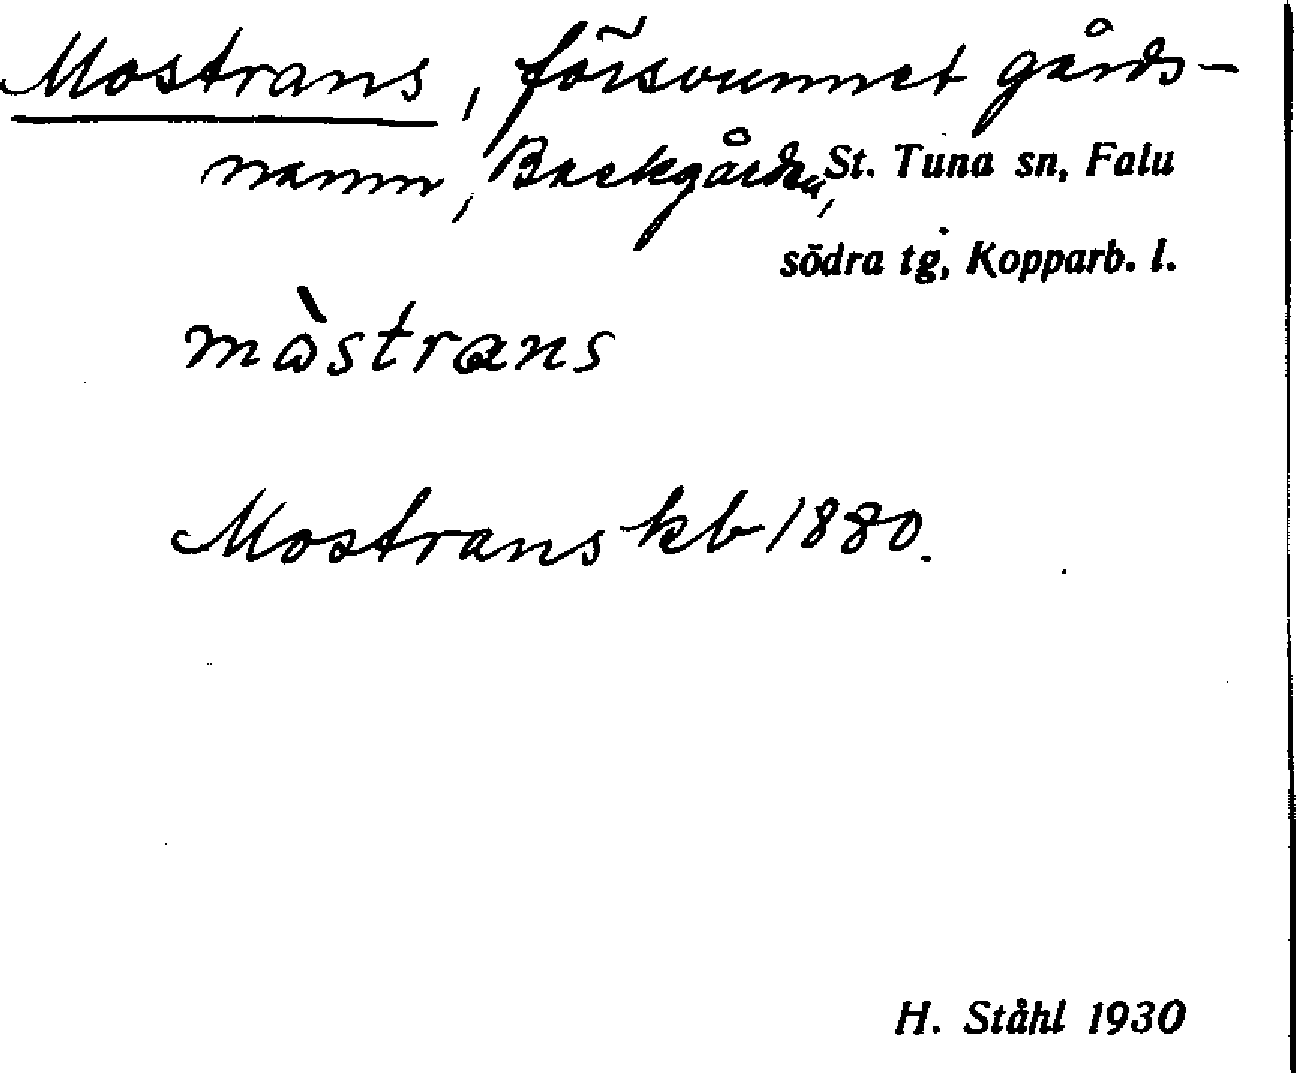 Mostrans, försvunnet gårds-
namn, Backgården, St. Tuna sn, Falu
södra tg, Kopparb. l.
mὼstrans
Mostrans kb 1880.
H. Ståhl 1930